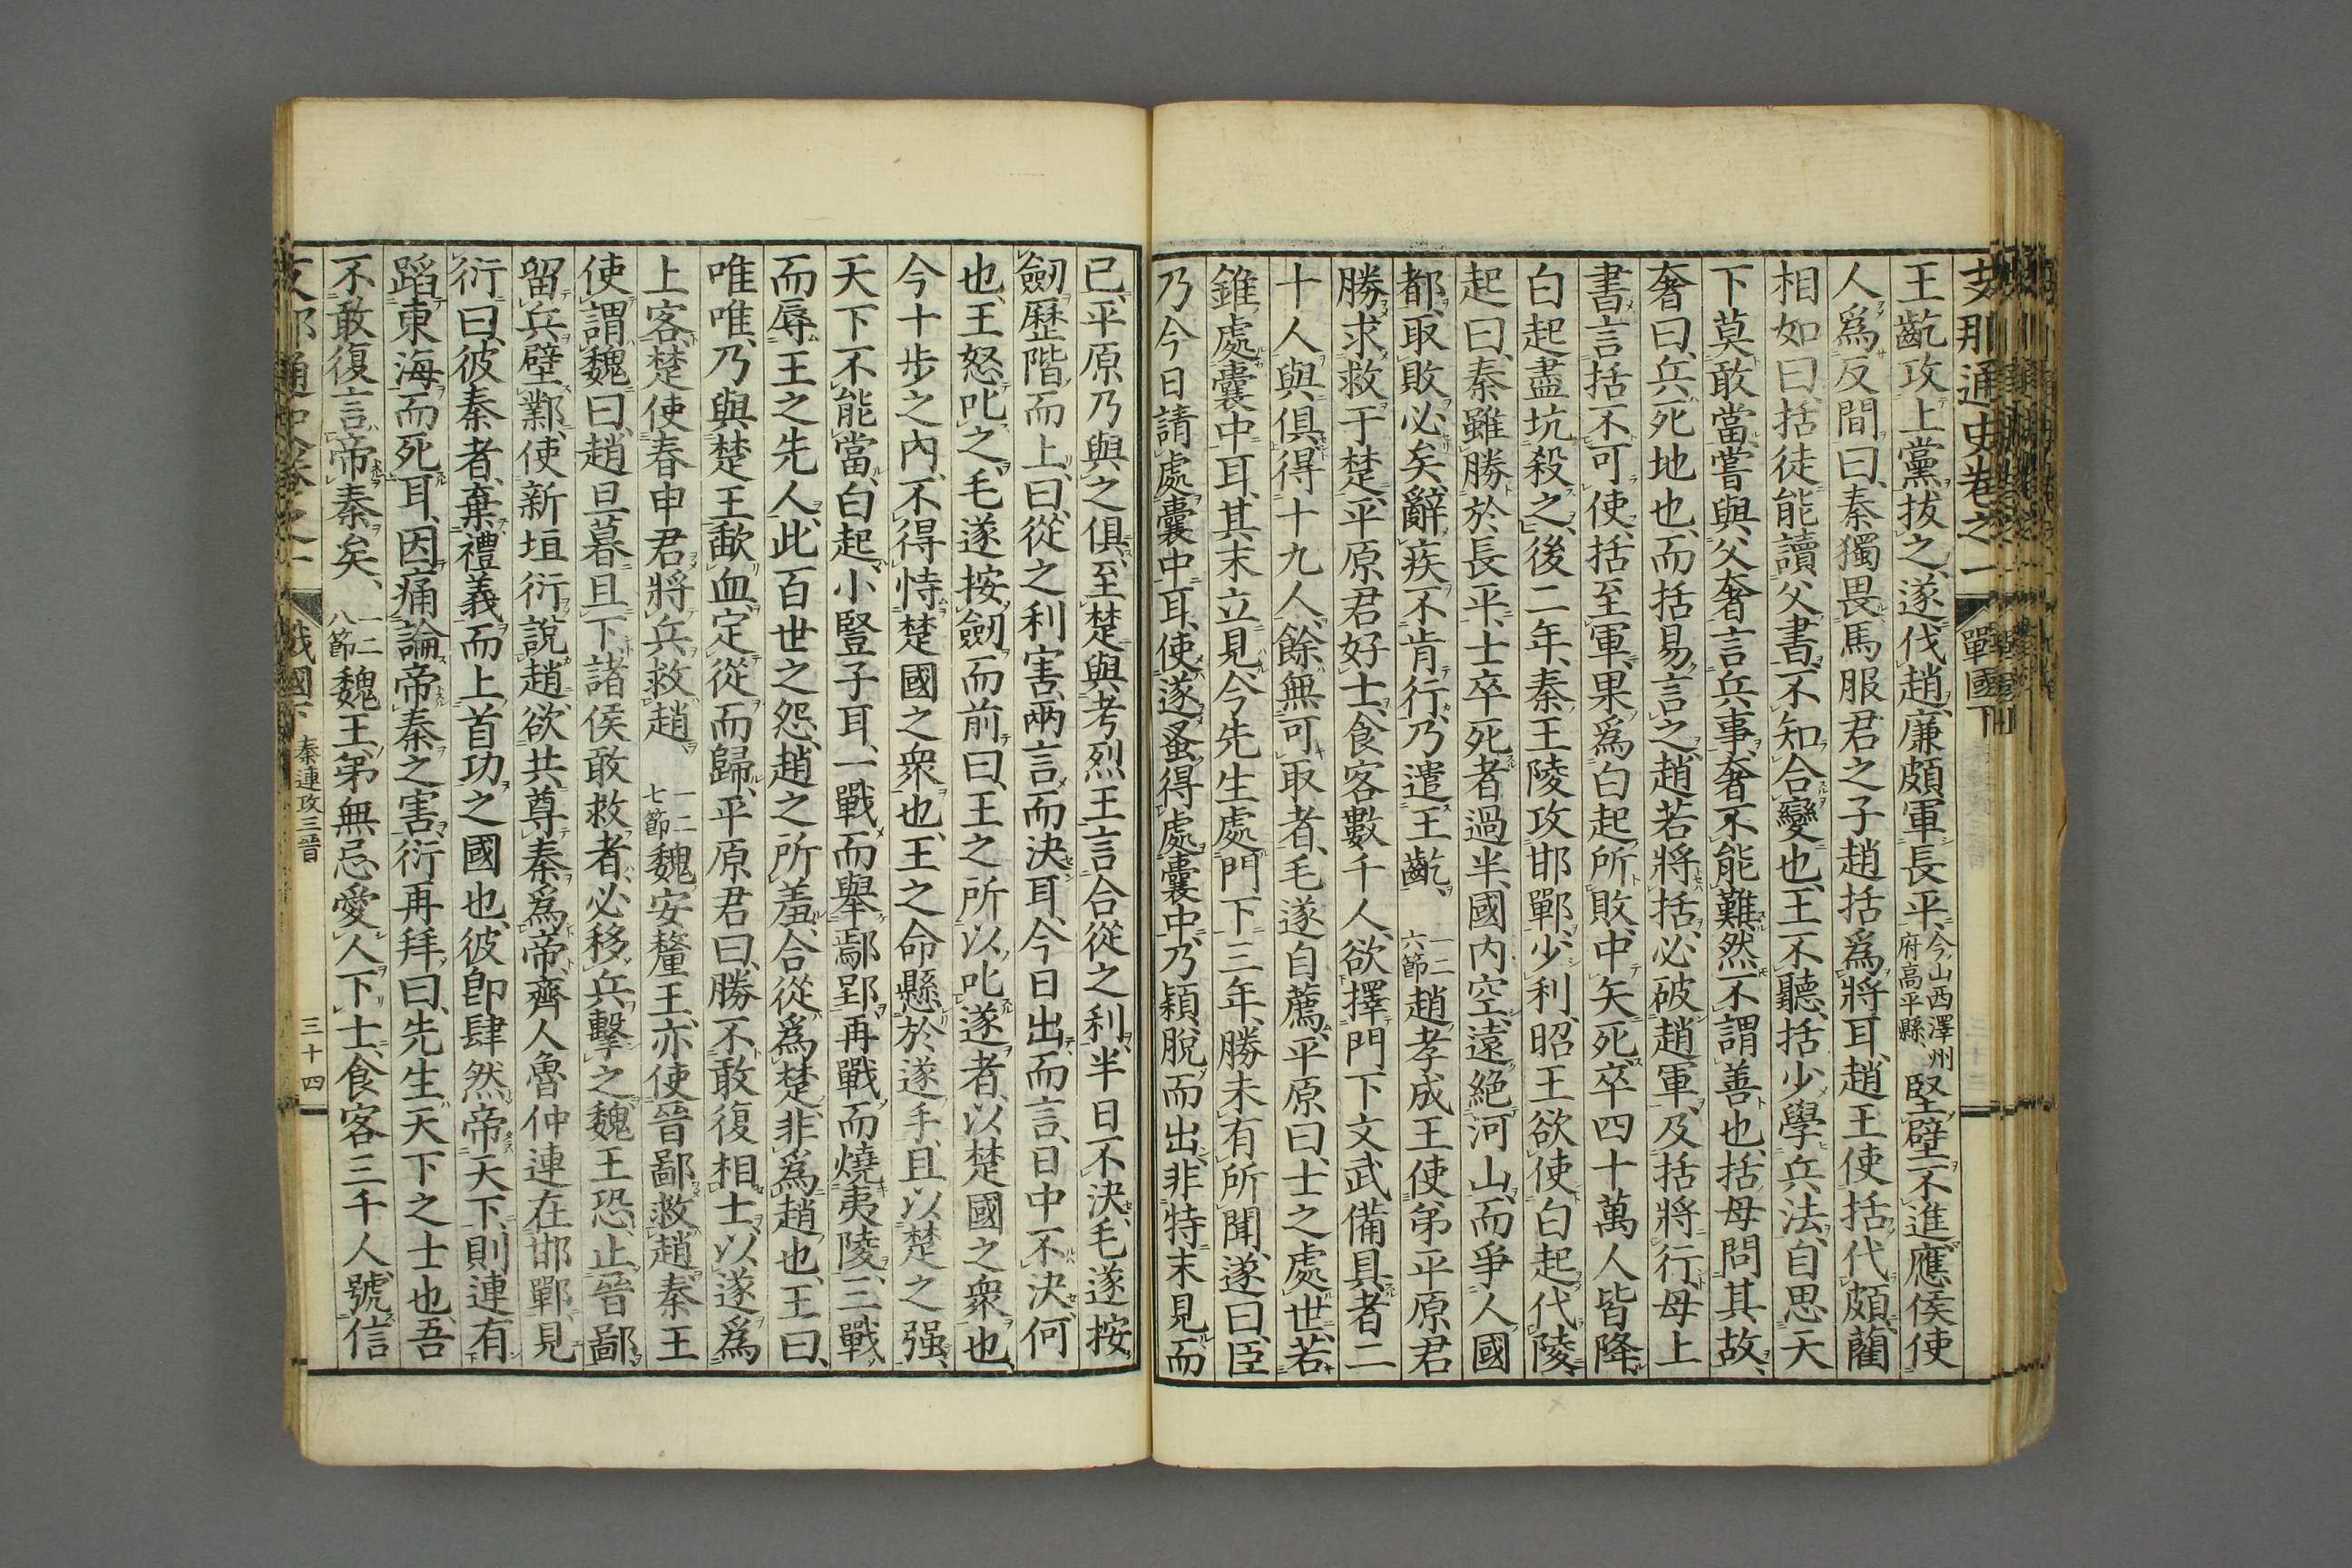 支那通史卷之一 戰國下
王齕攻上黨拔之、遂伐趙、廉頗軍長平、今山西澤州府高平縣、堅壁不進、應侯使
人爲反間曰、秦獨畏馬服君之子趙括爲將耳、趙王使括代頗、藺
相如曰、括徒能讀父書、不知合變也、王不聽、括少學兵法、自思天
下莫敢當、嘗與父奢言兵事、奢不能難、然不謂善也、括母問其故、
奢曰、兵、死地也、而括易言之、趙若將括、必破趙軍、及括將行、母上
書言括不可使、括至軍、果爲白起所敗、中矢死、卒四十萬人皆降、
白起盡坑殺之、後二年、秦王陵攻邯鄲、少利、昭王欲使白起代陵、
起曰、秦雖勝於長平、士卒死者過半、國內空、遠絕河山、而爭人國
都、取敗必矣、辭疾不肯行、乃遣王齕、 一二六節 趙孝成王使弟平原君
勝求救于楚、平原君好士、食客數千人、欲擇門下文武備具者二
十人與俱、得十九人、餘無可取者、毛遂自薦、平原曰、士之處世、若
錐處囊中耳、其末立見、今先生處門下三年、勝未有所聞、遂曰、臣
乃今日請處囊中耳、使遂蚤得處囊中、乃穎脫而出、非特末見而
已、平原乃與之俱、至楚與考烈王言合從之利、半日不決、毛遂按
劒歷階而上、曰、從之利害、兩言而決耳、今日出而言、日中不決、何
也、王怒叱之、毛遂按劒而前曰、王之所以叱遂者、以楚國之衆也、
今十步之內、不得恃楚國之衆也、王之命懸於遂手、且以楚之强、
天下不能當、白起小豎子耳、一戰而舉鄢郢、再戰而燒夷陵、三戰
而辱王之先人、此百世之怨、趙之所羞、合從爲楚、非爲趙也、王曰、
唯唯、乃與楚王歃血定從而歸、平原君曰、勝不敢復相士、以遂爲
上客、楚使春申君將兵救趙、 一二七節 魏安釐王、亦使晉鄙救趙、秦王
使謂魏曰、趙旦暮且下、諸侯敢救者、必移兵擊之、魏王恐、止晉鄙、
留兵壁鄴、使新垣衍說趙、欲共尊秦爲帝、齊人魯仲連在邯鄲、見
衍曰、彼秦者、棄禮義而上首功之國也、彼卽肆然帝天下、則連有
蹈東海而死耳、因痛論帝秦之害、衍再拜曰、先生天下之士也、吾
不敢復言帝秦矣、 一二八節 魏王弟無忌、愛人下士、食客三千人、號信
支那通史卷之一 戰國下 秦連攻三晉 三十四